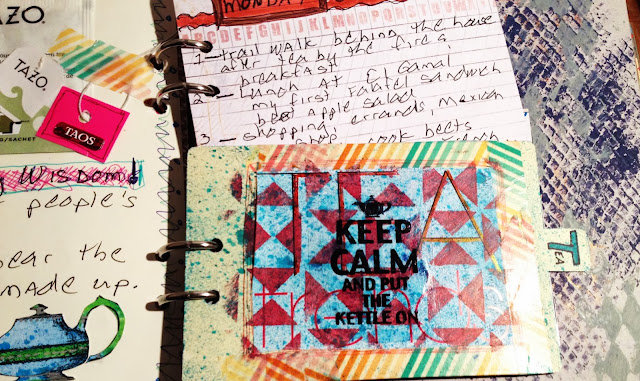 TAZO.
TAZO.
/SACHET
TAOS
WISDOM
people's
bear the
made up.
MONDAY
ABCDEFGHIJKLMNOPQRSTUVW
1 - trail walk behind the house
after tea by the fire,
breakfast
2 - Lunch At El Gamal
my first falafel sandwich
beet apple salad
3 - shopping, errands, Mexican
shop, cook beets
TEA
KEEP
CALM
AND PUT
THE
KETTLE ON
TEA